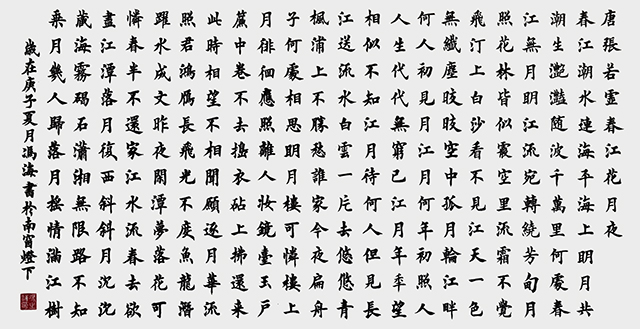 唐張若虛春江花月夜
春江潮水連海平海上明月共
潮生灧灧隨波千萬里何處春
江無月明江流宛轉繞芳甸月
照花林皆似霰空里流霜不覺
飛汀上白沙看不見江天一色
無纖塵皎皎空中孤月輪江畔
何人初見月江月何年初照人
人生代代無窮已江月年年望
相似不知江月待何人但見長
江送流水白雲一片去悠悠青
楓浦上不勝愁誰家今夜扁舟
子何處相思明月樓可憐樓上
月徘徊應照離人妝鏡臺玉戶
簾中卷不去搗衣砧上拂還來
此時相望不相聞願逐月華流
照君鴻雁長飛光不度魚龍潛
躍水成文昨夜閑潭夢落花可
憐春半不還家江水流春去欲
盡江潭落月復西斜斜月沉沉
藏海霧碣石瀟湘無限路不知
乘月幾人歸落月搖情滿江樹
歲在庚子夏月馮海書於南窗燈下